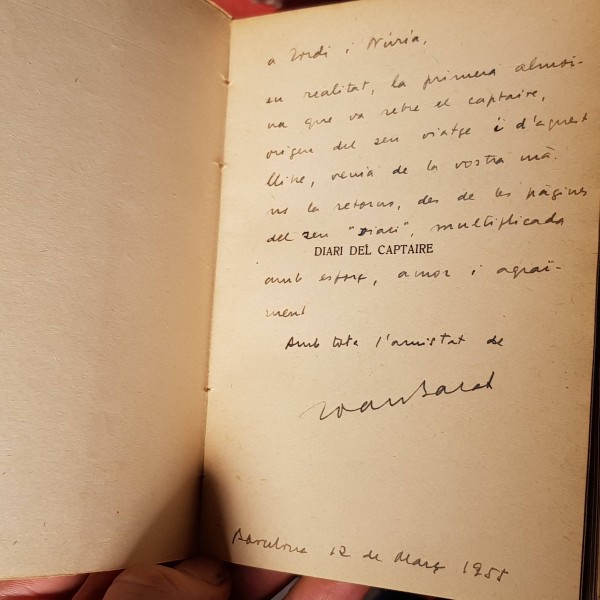 a Jordi i Núria,
en realitat, la primera almoi-
na que va rebre el captaire,
origen del seu viatge i d'aquest
llibre, venia de la vostra mà.
us la retorno, des de les pàgines
del seu "Diari", multiplicada
DIARI DEL CAPTAIRE
amb esforç, amor i agraï-
ment
Amb tota l'amistat de
Joan Barat
Barcelona 12 de Març 1955